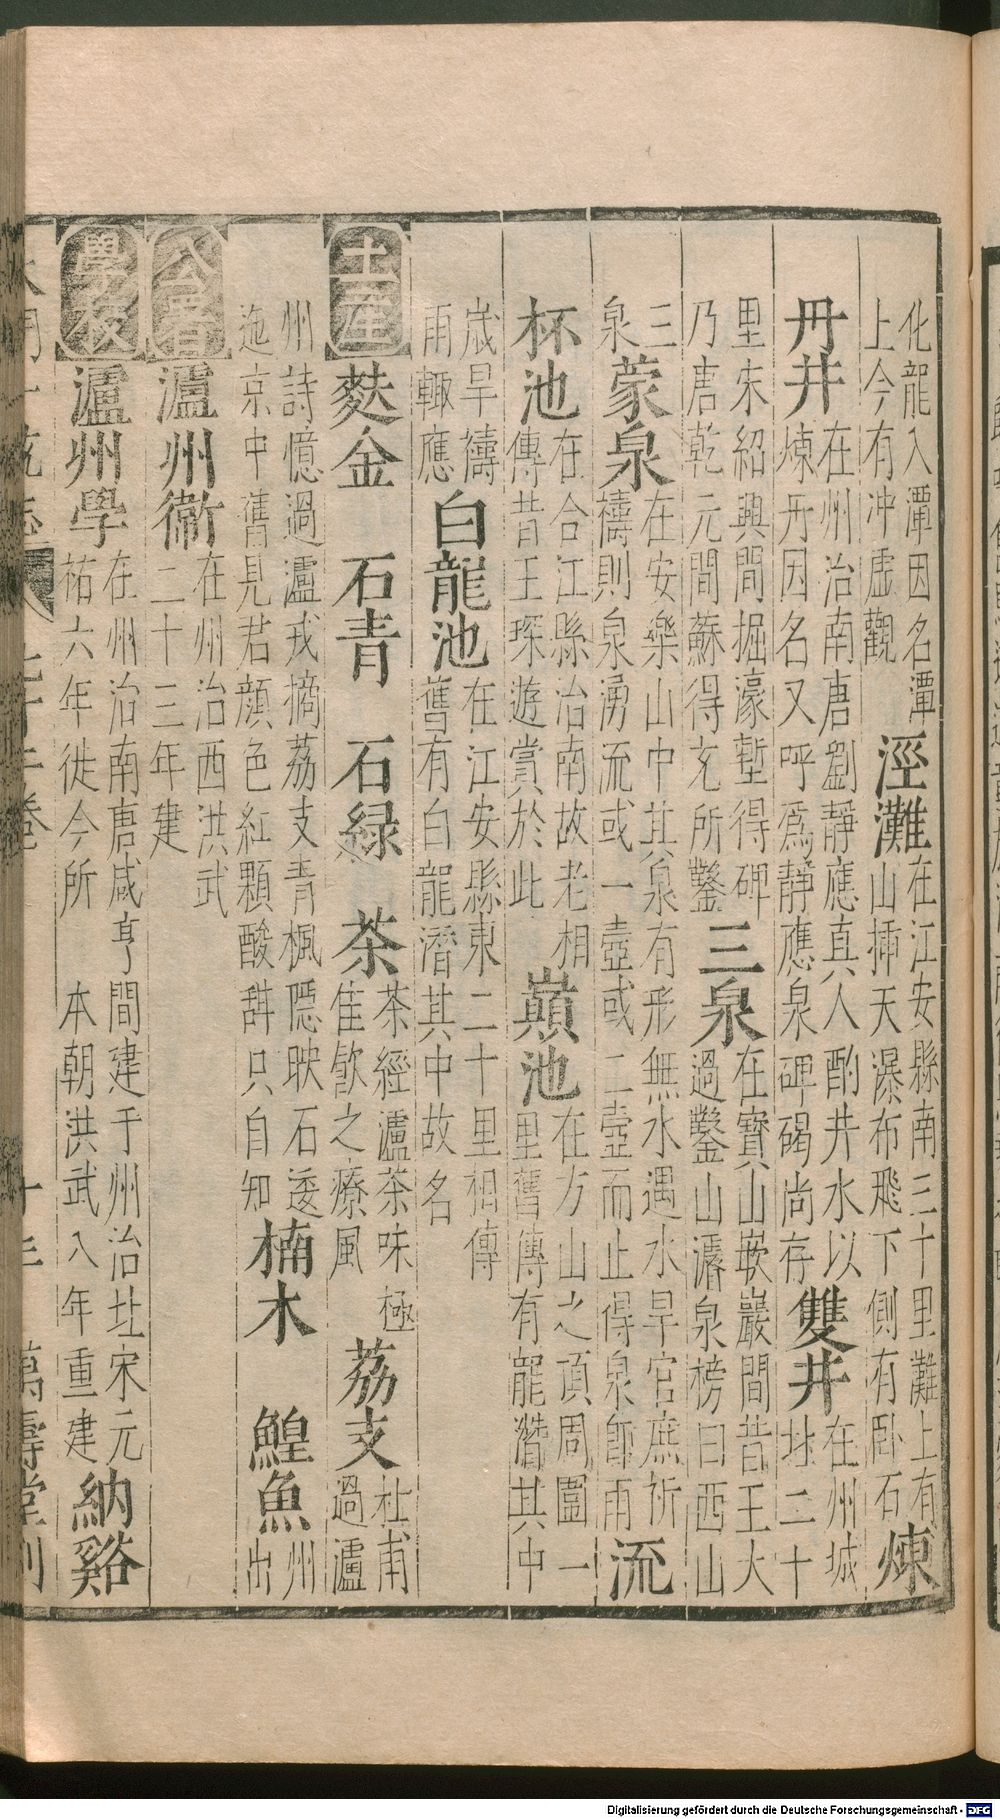 化龍入潭因名潭
上今有沖虛觀
涇灘
在江安縣南三十里灘上有
山揷天瀑布飛下側有卧石
煉
丹井
在州治南唐劉靜應真人酌井水以
煉丹因名又呼爲靜應泉碑碣尚存
雙井
在州城
址二十
里宋紹興間掘濠塹得碑
乃唐乾元間蘇得玄所鑿
三泉
在寶山嵌巖間昔王大
過鑿山濬泉榜曰西山
三
泉
蒙泉
在安樂山中其泉有形無水遇水旱官庶祈
禱則泉湧流或一壺或二壺而止得泉卽雨
流
杯池
在合江縣治南故老相
傳昔王琛遊賞於此
巔池
在方山之頂周圍一
里舊傳有龍潛其中
歲旱禱
雨輙應
白龍池
在江安縣東二十里相傳
舊有白龍潛其中故名
土產
麩金
石青
石緑
茶
茶經瀘茶味極
佳飮之療風
荔支
杜甫
過瀘
州詩憶過瀘戎摘荔支青楓隱映石逶
迤京中舊見君顔色紅顆酸甜只自知
楠木
鰉魚
州
出
公署
瀘州衞
在州治西洪武
二十三年建
學校
瀘州學
在州治南唐咸亨間建于州治址宋元
祐六年徙今所 本朝洪武八年重建
納谿
大明一統志 七十二卷 十三 萬壽堂刊
Digitalisierung gefördert durch die Deutsche Forschungsgemeinschaft - DFG